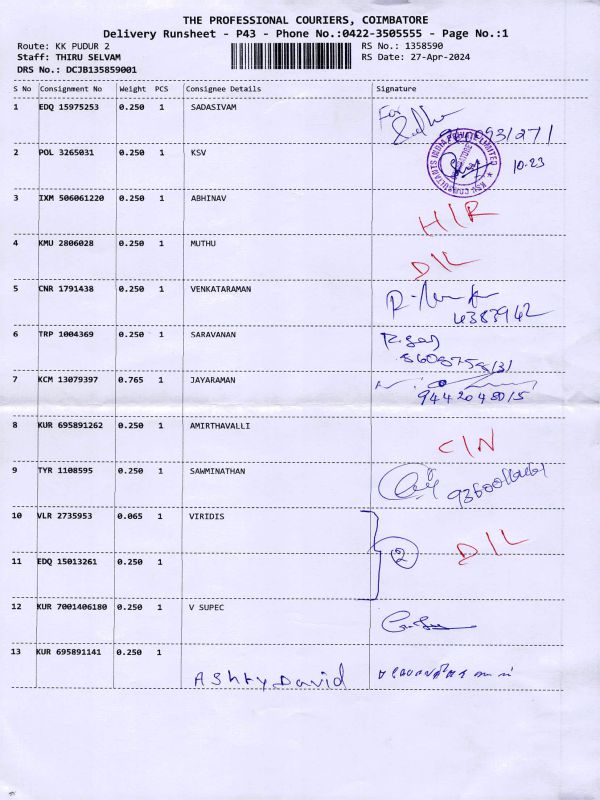 THE PROFESSIONAL COURIERS, COIMBATORE
Delivery Runsheet - P43 - Phone No.:0422-3505555 - Page No.:1
Route: KK PUDUR 2
RS No.: 1358590
Staff: THIRU SELVAM
RS Date: 27-Apr-2024
DRS No.: DCJB135859001
S No Consignment No Weight PCS Consignee Details Signature
1 EDQ 15975253 0.250 1 SADASIVAM
For
2 POL 3265031 0.250 1 KSV
KSV CONSULTANTS INDIA PRIVATE LIMITED
10.23
3 IXM 506061220 0.250 1 ABHINAV
H/R
4 KMU 2806028 0.250 1 MUTHU
D/L
5 CNR 1791438 0.250 1 VENKATARAMAN
4383942
6 TRP 1004369 0.250 1 SARAVANAN
7 KCM 13079397 0.765 1 JAYARAMAN
8 KUR 695891262 0.250 1 AMIRTHAVALLI
C/N
9 TYR 1108595 0.250 1 SAWMINATHAN
10 VLR 2735953 0.065 1 VIRIDIS
2 D/L
11 EDQ 15013261 0.250 1
12 KUR 7001406180 0.250 1 V SUPEC
13 KUR 695891141 0.250 1
David